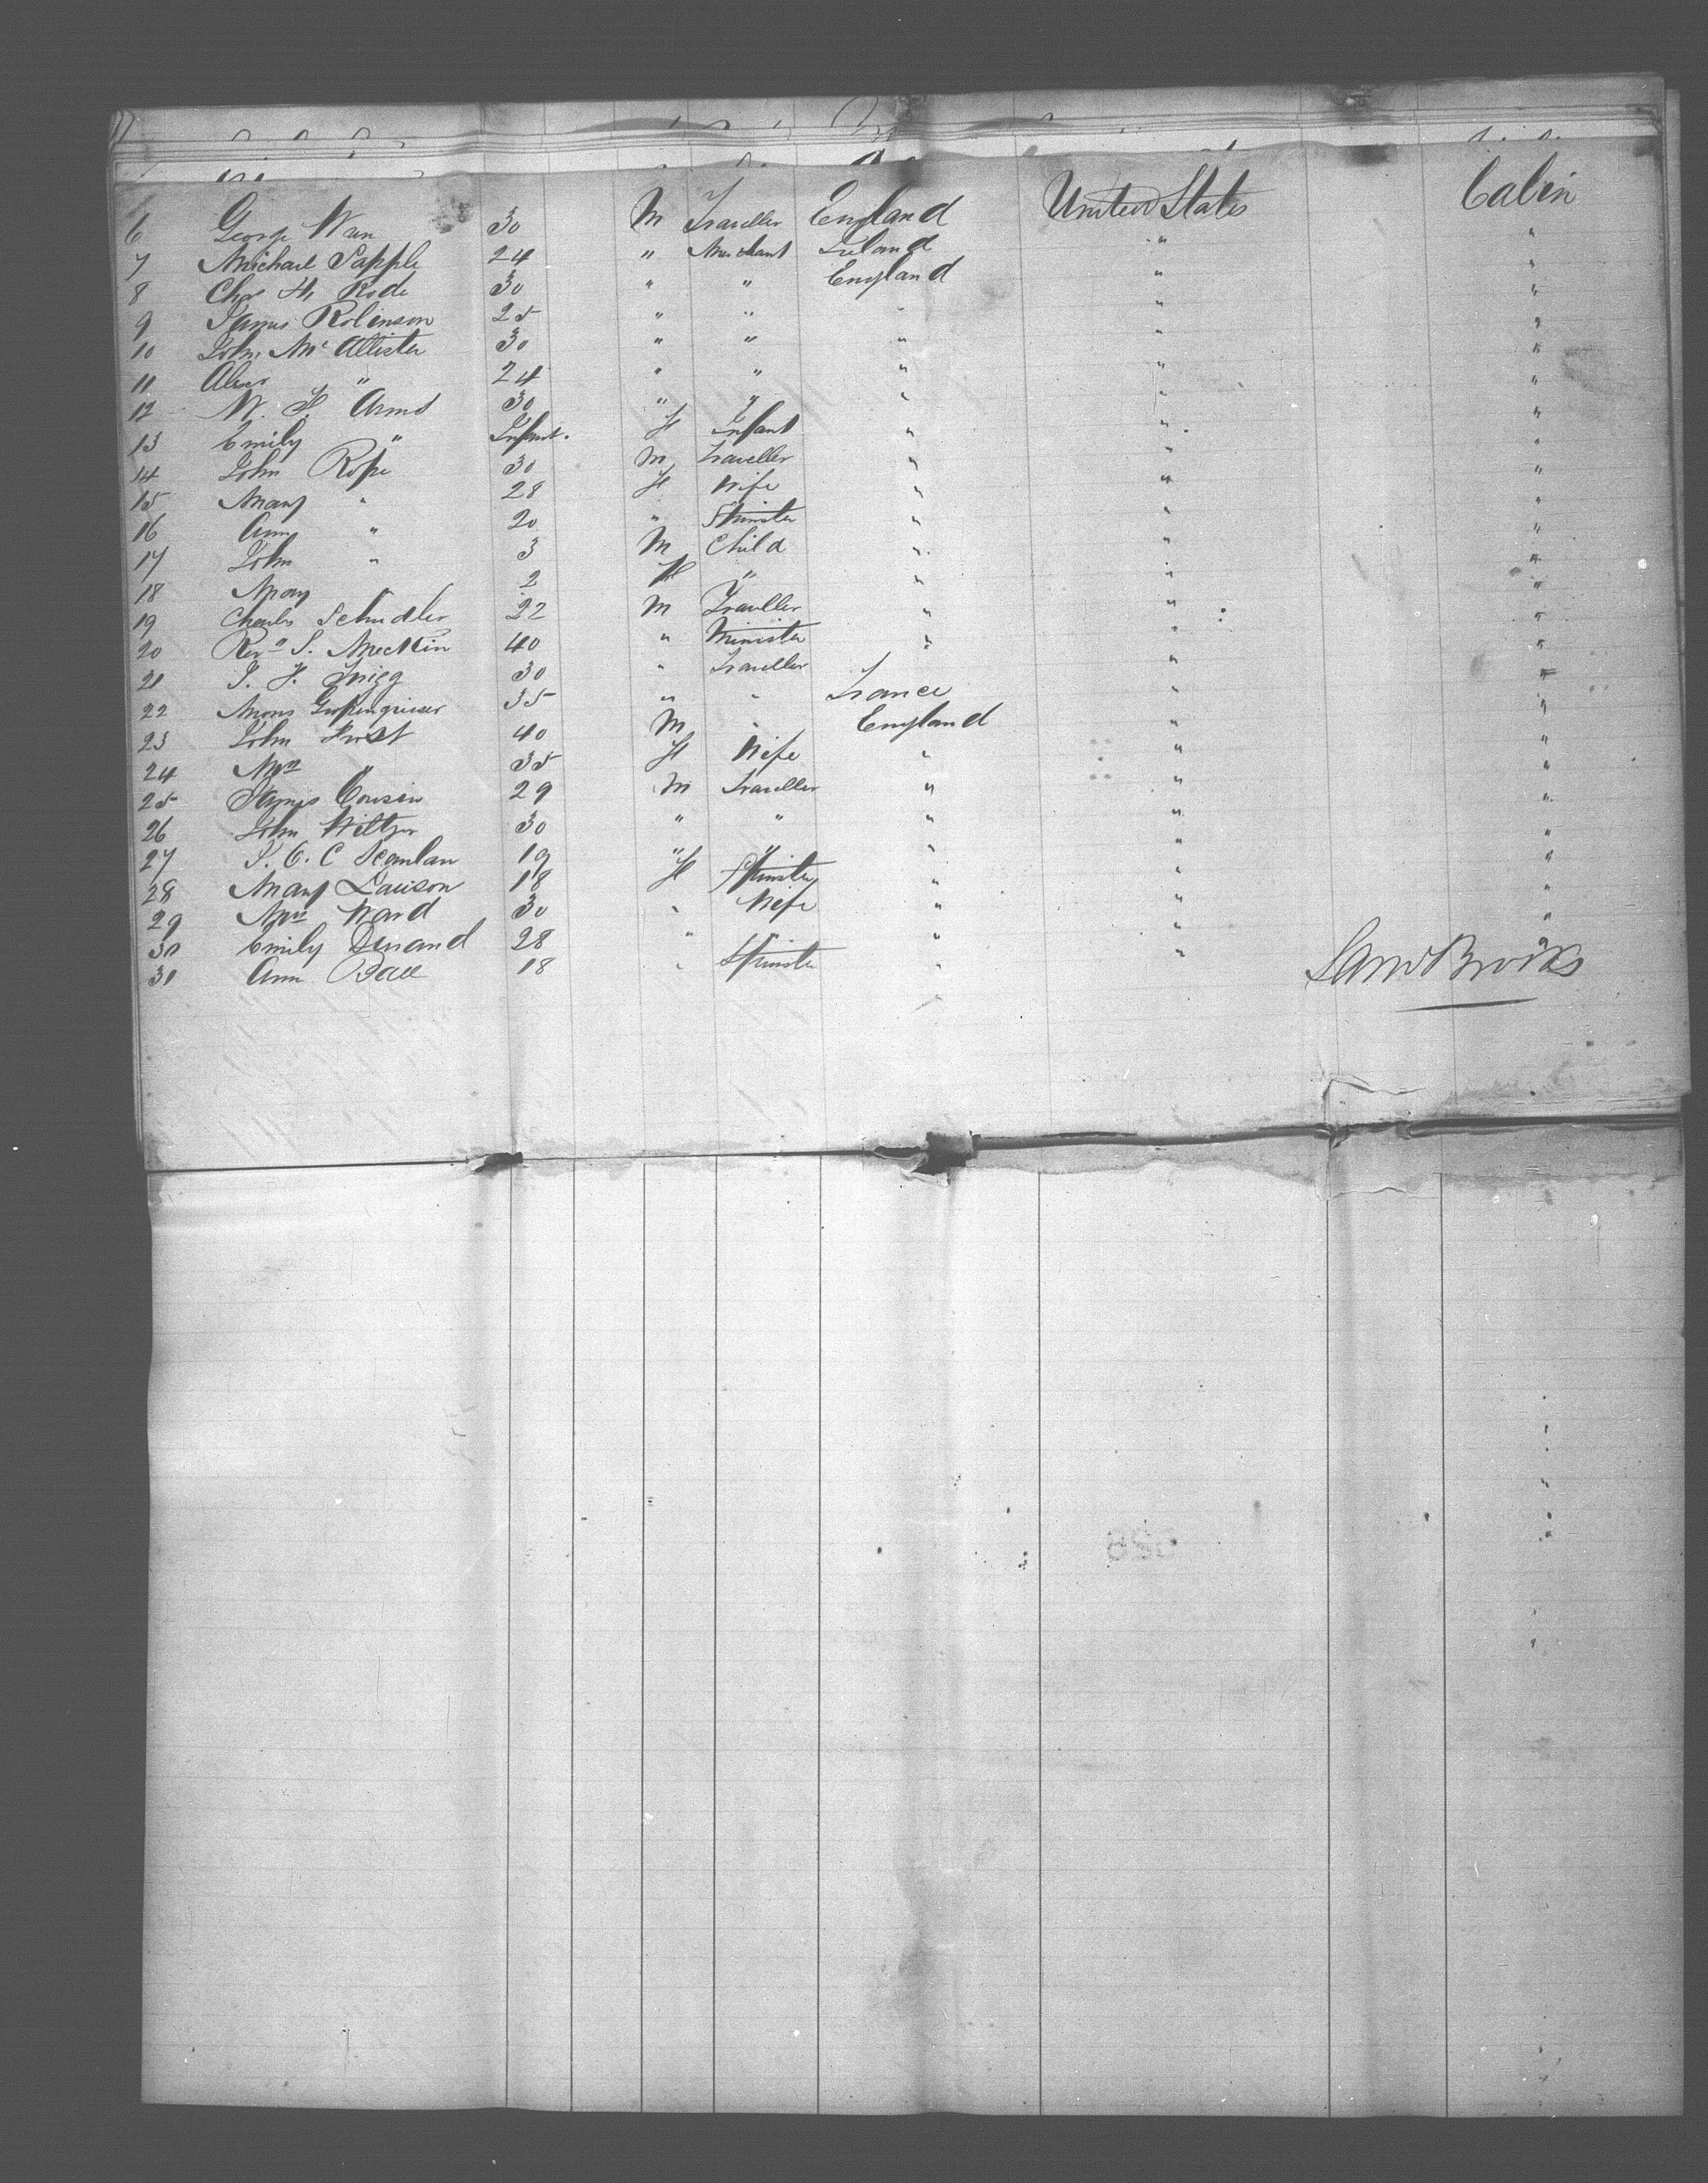 6 George Wan 30 M Traveller England United States Cabin
7 Michael Sapple 24 " Merchant Ireland " "
8 Chas H. Rode 30 " " England " "
9 James Robinson 25 " " " " "
10 John McAllister 30 " " " " "
11 Alexr " 24 " " " " "
12 W. H. Arms 30 " " " " "
13 Emily " Infant. F Infant " " "
14 John Rope 30 M Traveller " " "
15 Mary " 28 F Wife " " "
16 Ann " 20 " Spinster " " "
17 John " 3 M Child " " "
18 Mary " 2 F " " " "
19 Charles Schudler 22 M Traveller " " "
20 Revd S. 40 " Minister " " "
21 J. H. Trigg 30 " Traveller " " "
22 Mons 35 " " France " "
23 John Frost 40 M " England " "
24 Mrs " 35 F Wife " " "
25 James Cousin 29 M Traveller " " "
26 John 30 " " " " "
27 J. C. C Scanlan 19 " " " " "
28 Mary Lawson 18 F Spinster " " "
29 Mrs Ward 30 " Wife " " "
30 Emily Durand 28 " " " " "
31 Ann Ball 18 " Spinster " " "
Saml Brooks